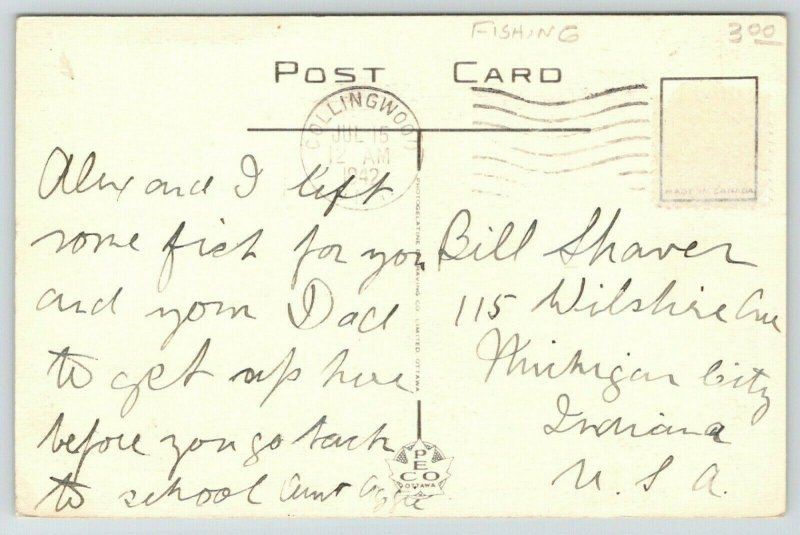 FISHING
3.00
POST CARD
COLLINGWOOD
JUL 15
12 AM
1942
MADE IN CANADA
Alex and I left
some fish for you
and your Dad
to get up here
before you go back
to school Aunt
Bill Shaver
115 Wilshire Ave
Michigan City
Indiana
U.S.A.
PHOTOGELATINE ENGRAVING CO. LIMITED, OTTAWA
PECO
OTTAWA